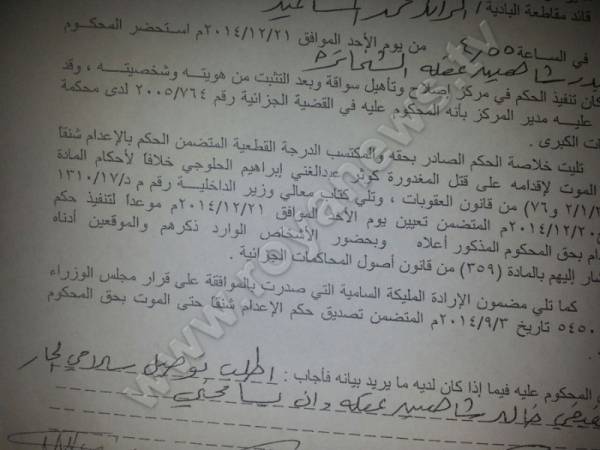 قائد مقاطعة البادية / الرائد محمد
في الساعة من يوم الأحد الموافق ٢٠١٤/١٢/٢١م استحضر المحكوم
شاهين عفله
كان تنفيذ الحكم في مركز إصلاح وتأهيل سواقة وبعد التثبت من هويته وشخصيته ، وقد
عليه مدير المركز بأنه المحكوم عليه في القضية الجزائية رقم ٢٠٠٥/٧٦٤ لدى محكمة
ات الكبرى .
تليت خلاصة الحكم الصادر بحقه والمكتسب الدرجة القطعية المتضمن الحكم بالإعدام شنقاً
الموت لإقدامه على قتل المغدورة كوثر عبدالغني إبراهيم الحلوجي خلافاً لأحكام المادة
٢/١/٣ و٧٦) من قانون العقوبات ، وتلي كتاب معالي وزير الداخلية رقم م د/١٣١٠/١٧
٢٠١٤/١٢/٢٠م المتضمن تعيين يوم الأحد الموافق ٢٠١٤/١٢/٢١م موعداً لتنفيذ حكم
دام بحق المحكوم المذكور أعلاه وبحضور الأشخاص الوارد ذكرهم والموقعين أدناه
شار إليهم بالمادة (٣٥٩) من قانون أصول المحاكمات الجزائية .
كما تلي مضمون الإرادة الملكية السامية التي صدرت بالموافقة على قرار مجلس الوزراء
٥٤٥٠ تاريخ ٢٠١٤/٩/٣م المتضمن تصديق حكم الإعدام شنقاً حتى الموت بحق المحكوم
المحكوم عليه فيما إذا كان لديه ما يريد بيانه فأجاب : اطلب توصيل سلامي
خالد شاهين عفله وان يسامحني
www.royanews.tv